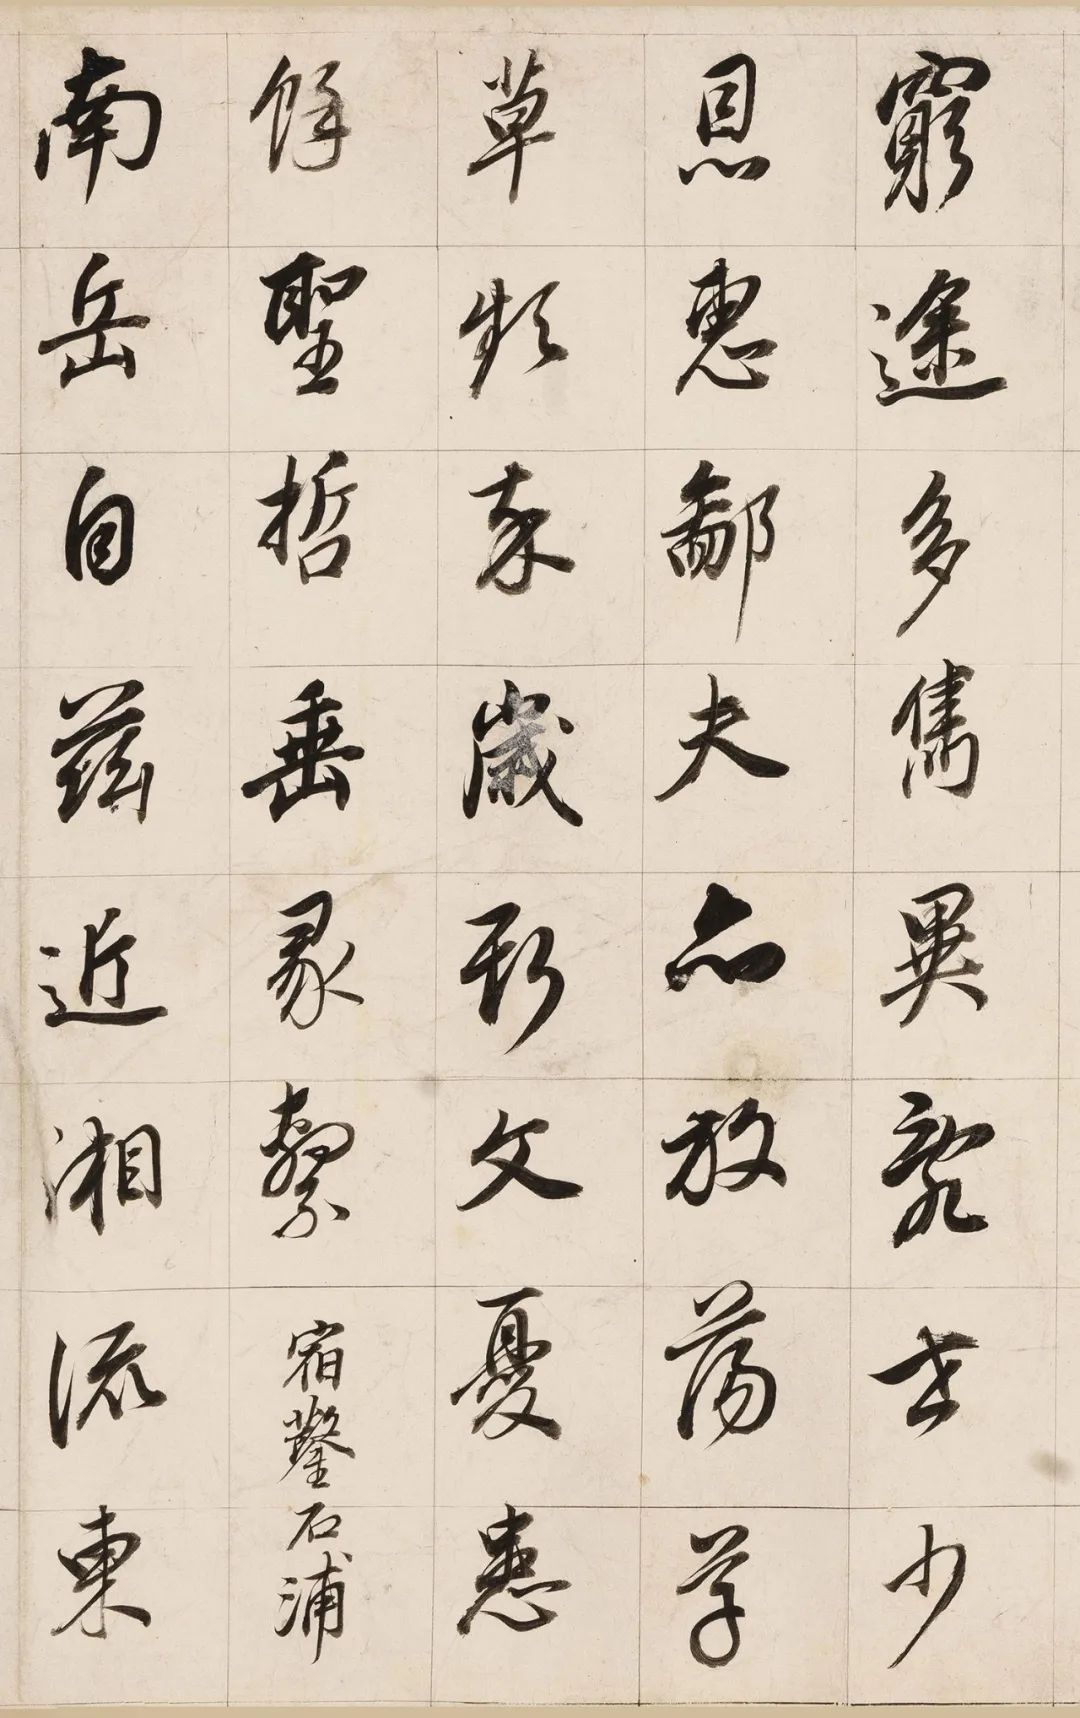 窮途多雋異亂世少
恩惠鄙夫亦放蕩草
草頻卒歲斯文憂患
餘聖哲垂彖繫 宿鑿石浦
南岳自茲近湘流東